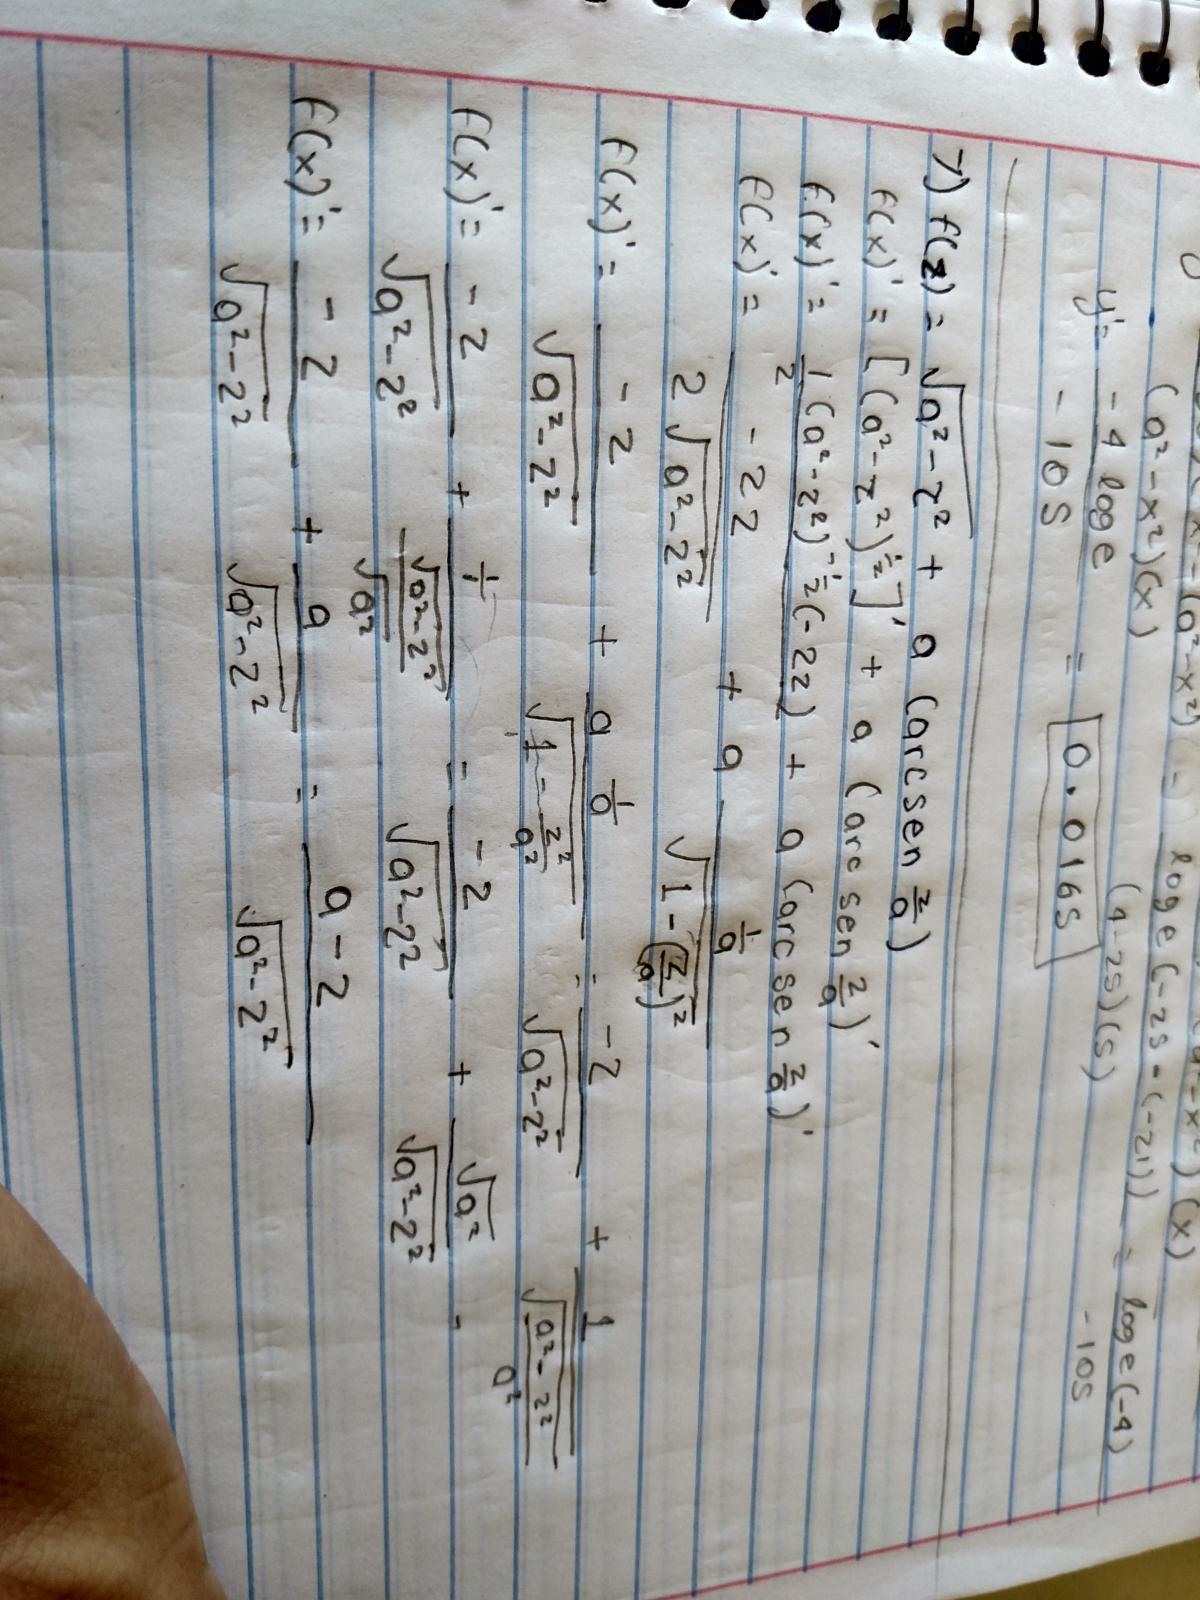 (a²-x²)(x)
(4-25)(5)
-105
y'= -4 log e / -105 = 0.0165
7) f(z) = √a²-z² + a (arcsen z/a)
f(x)' = [(a²-z²)^½]' + a (arcsen z/a)'
f(x)' = 1/2 (a²-z²)^-½ (-2z) + a (arcsen z/a)'
f(x)' = -2z / 2√a²-z² + a 1/a / √1-(z/a)²
f(x)' = -z / √a²-z² + a 1/a / √1-z²/a² = -z / √a²-z² + 1 / √a²-z²/a²
f(x)' = -z / √a²-z² + 1 / √a²-z²/√a² = -z / √a²-z² + √a² / √a²-z² -
f(x)' = -z / √a²-z² + a / √a²-z² = a-z / √a²-z²